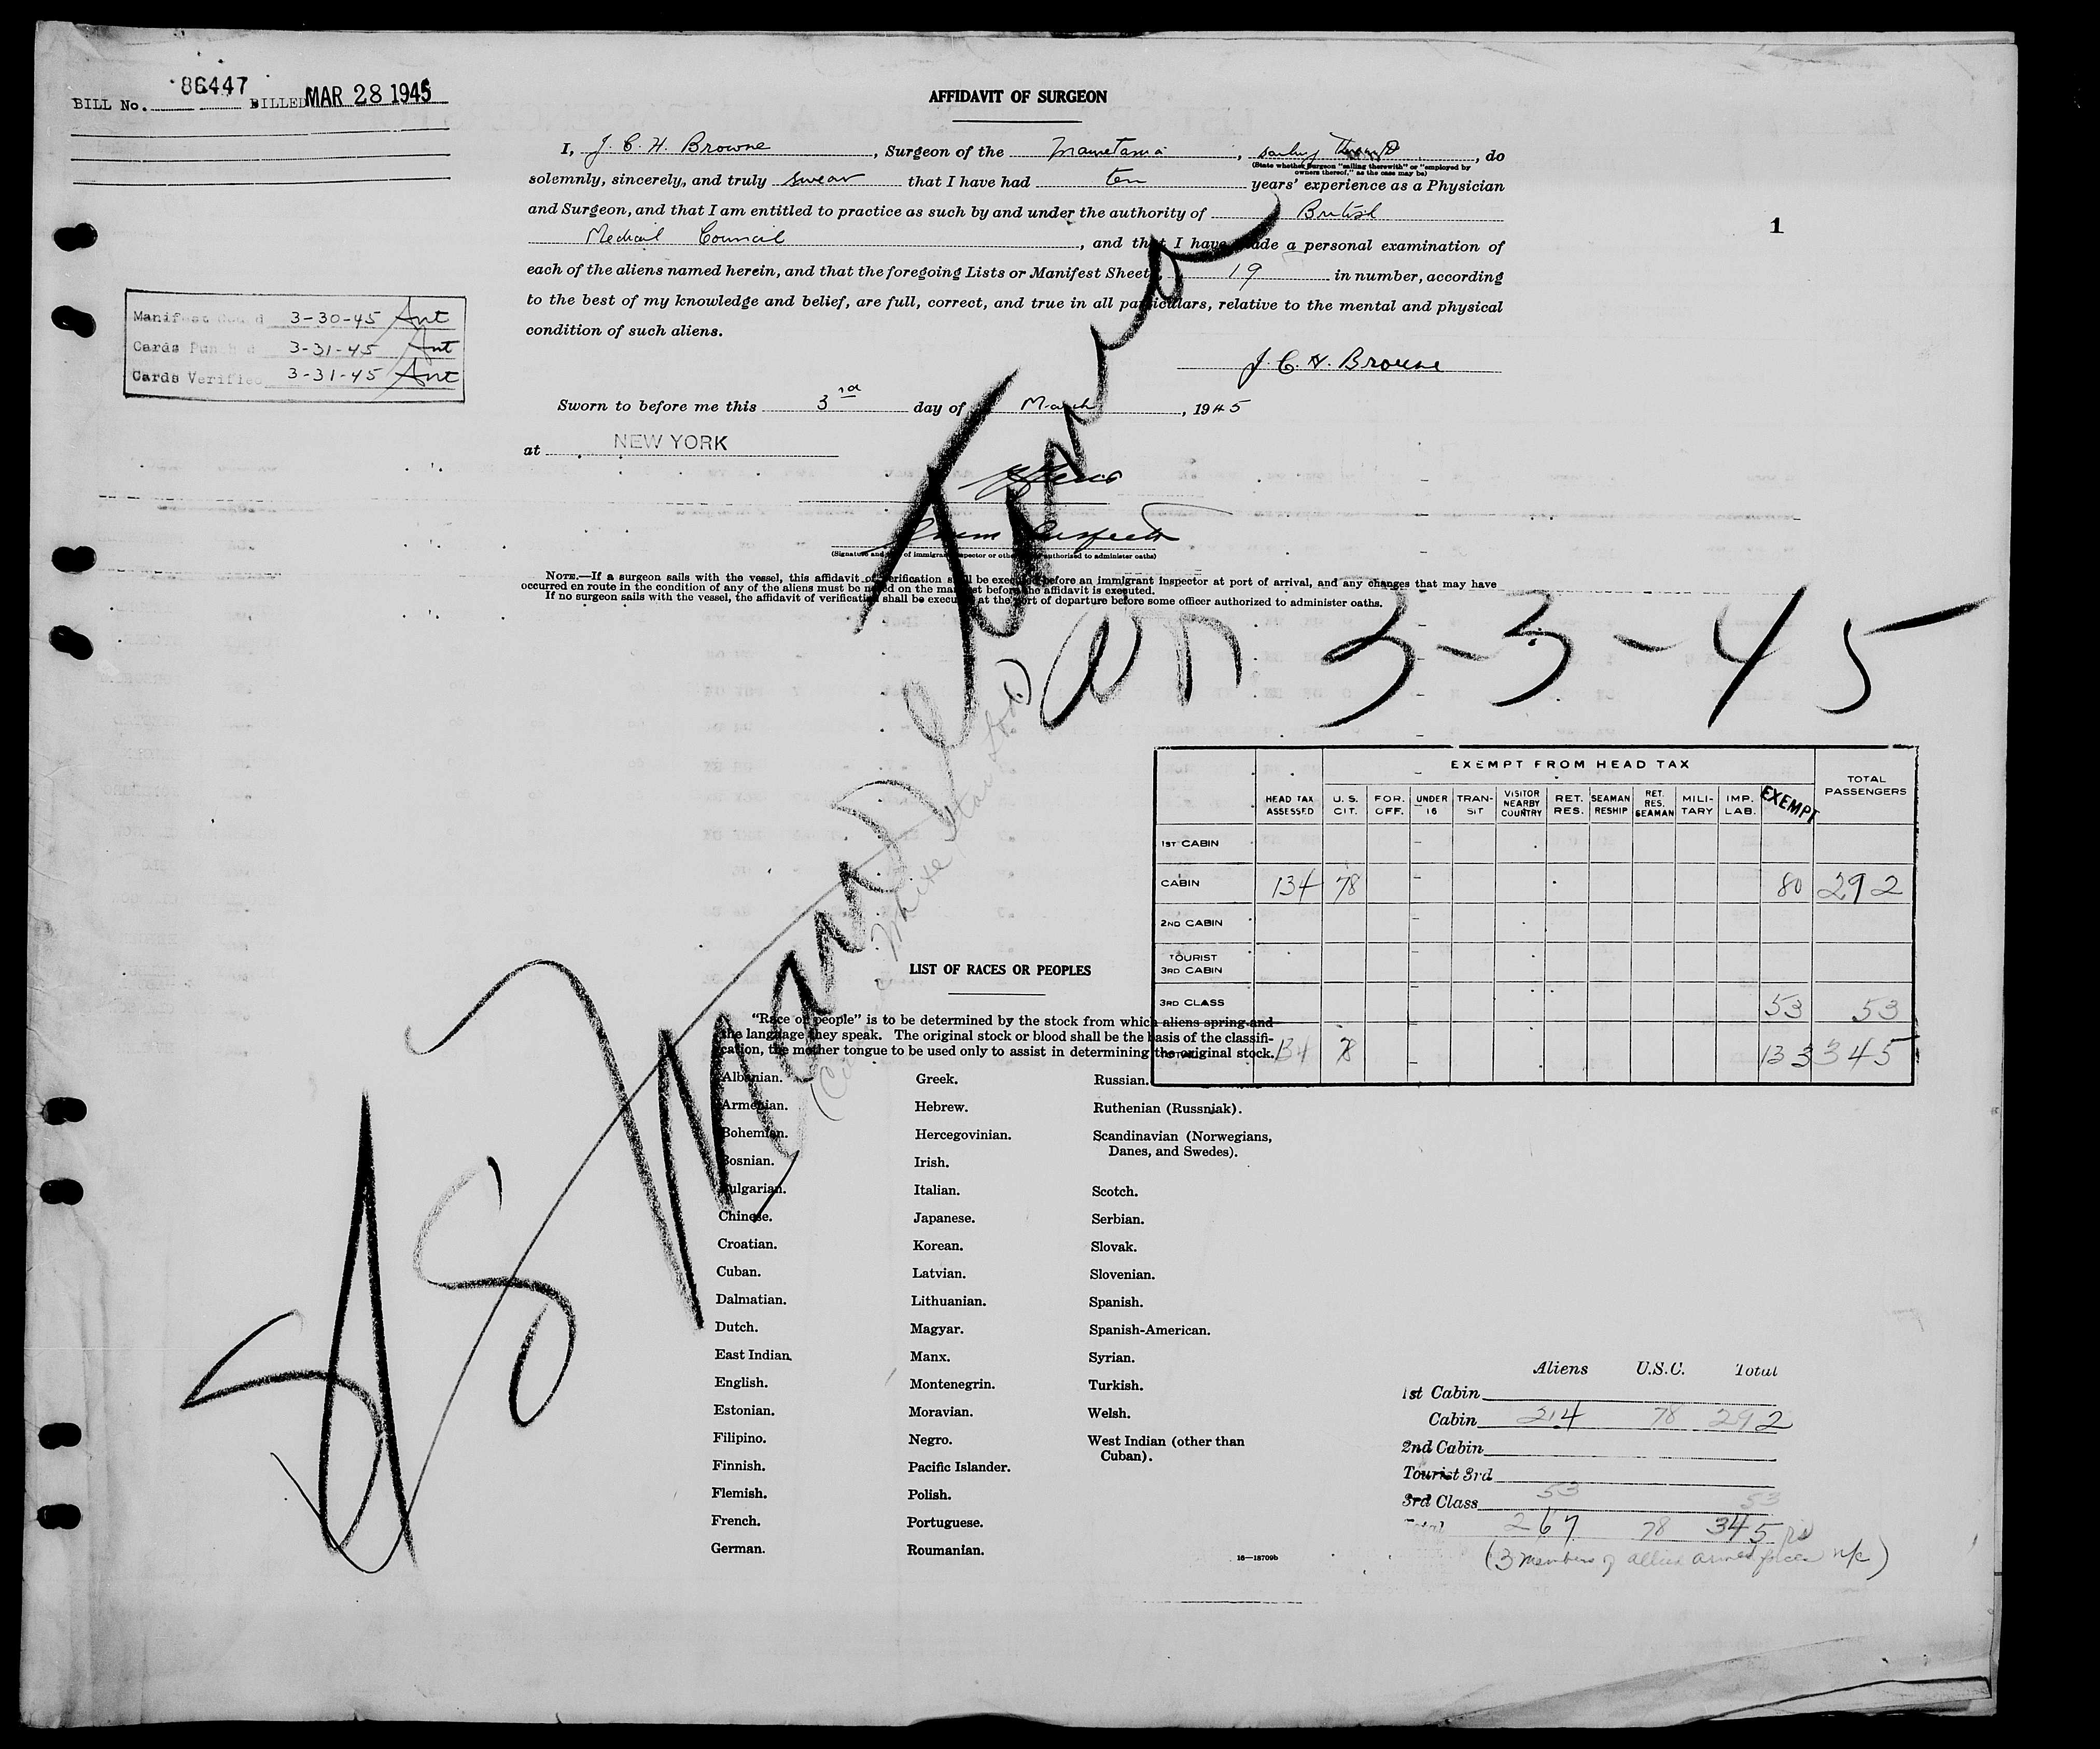 BILL No. 86447 BILLED MAR 28 1945
AFFIDAVIT OF SURGEON
I, J. C. H. Browne, Surgeon of the Mauretania, sailing therewith, do
(State whether Surgeon "sailing therewith" or "employed by owners thereof," as the case may be)
solemnly, sincerely, and truly swear that I have had ten years' experience as a Physician
and Surgeon, and that I am entitled to practice as such by and under the authority of British
Medical Council, and that I have made a personal examination of
each of the aliens named herein, and that the foregoing Lists or Manifest Sheets, 19 in number, according
to the best of my knowledge and belief, are full, correct, and true in all particulars, relative to the mental and physical
condition of such aliens.
1
Manifest 3-30-45 Ant
Cards Punched 3-31-45 Ant
Cards Verified 3-31-45 Ant
J. C. H. Browne
Sworn to before me this 3rd day of March, 1945
at NEW YORK
Immn Inspector
(Signature and title of immigrant inspector or other officer authorized to administer oaths)
NOTE.—If a surgeon sails with the vessel, this affidavit of verification shall be executed before an immigrant inspector at port of arrival, and any changes that may have
occurred en route in the condition of any of the aliens must be noted on the manifest before the affidavit is executed.
If no surgeon sails with the vessel, the affidavit of verification shall be executed at the port of departure before some officer authorized to administer oaths.
ar 3-3-45
EXEMPT FROM HEAD TAX
HEAD TAX ASSESSED U. S. CIT. FOR. OFF. UNDER 16 TRAN-SIT VISITOR NEARBY COUNTRY RET. RES. SEAMAN RESHIP RET. RES. SEAMAN MILI-TARY IMP. LAB. EXEMPT TOTAL PASSENGERS
1ST CABIN
CABIN 134 78 80 292
2ND CABIN
TOURIST 3RD CABIN
3RD CLASS 53 53
134 78 133 345
LIST OF RACES OR PEOPLES
"Race or people" is to be determined by the stock from which aliens spring and
the language they speak. The original stock or blood shall be the basis of the classifi-
cation, the mother tongue to be used only to assist in determining the original stock.
Albanian.
Armenian.
Bohemian.
Bosnian.
Bulgarian.
Chinese.
Croatian.
Cuban.
Dalmatian.
Dutch.
East Indian.
English.
Estonian.
Filipino.
Finnish.
Flemish.
French.
German.
Greek.
Hebrew.
Hercegovinian.
Irish.
Italian.
Japanese.
Korean.
Latvian.
Lithuanian.
Magyar.
Manx.
Montenegrin.
Moravian.
Negro.
Pacific Islander.
Polish.
Portuguese.
Roumanian.
Russian.
Ruthenian (Russniak).
Scandinavian (Norwegians,
Danes, and Swedes).
Scotch.
Serbian.
Slovak.
Slovenian.
Spanish.
Spanish-American.
Syrian.
Turkish.
Welsh.
West Indian (other than
Cuban).
16—18709b
Aliens U.S.C. Total
1st Cabin
Cabin 214 78 292
2nd Cabin
Tourist 3rd
3rd Class 53 53
Total 267 78 345
(3 members of allied armed forces n/c)